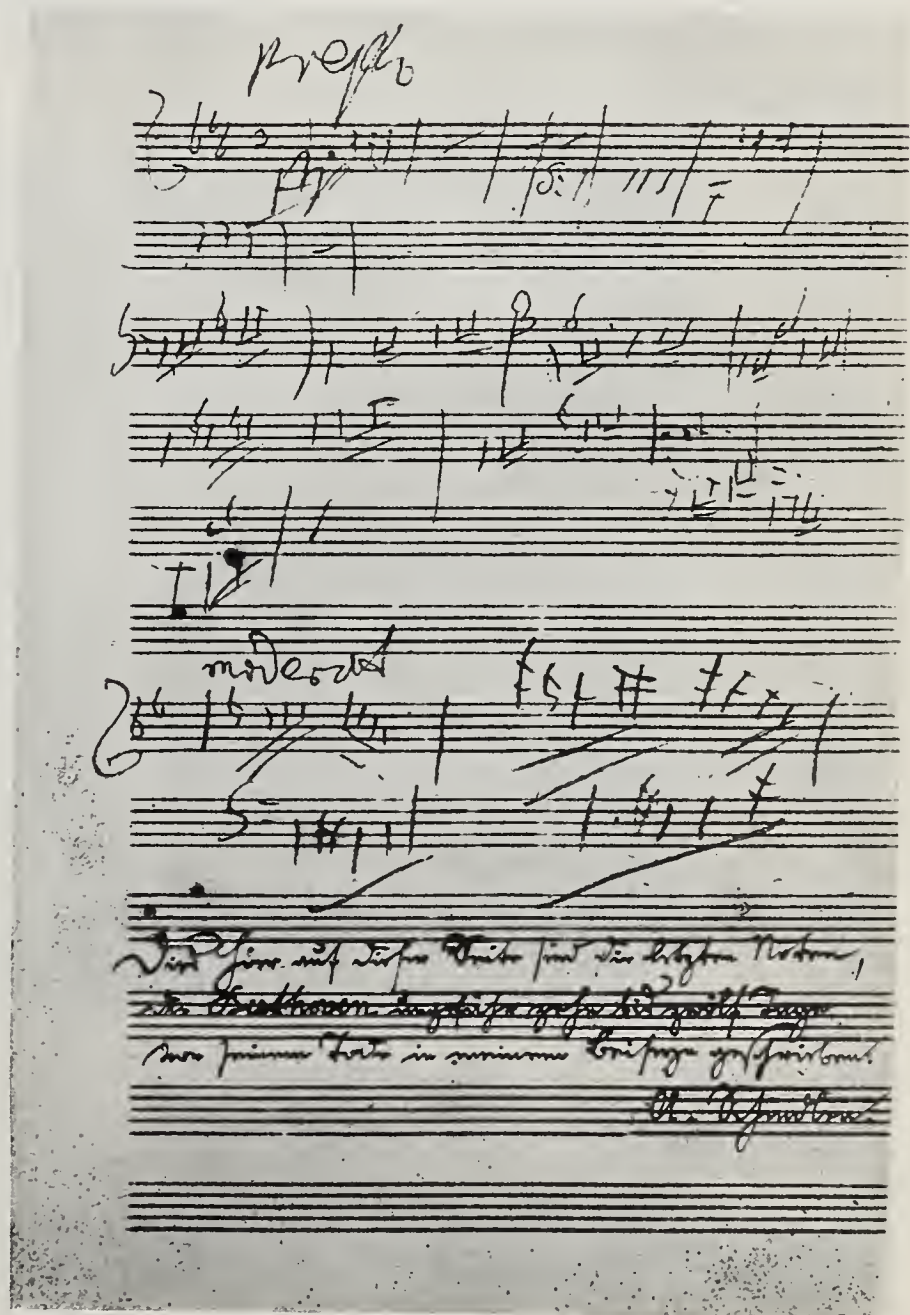 presto
moderato
Dies hier auf dieser Seite sind die letzten Noten,
die Beethoven ungefähr zehn bis zwölf Tage
vor seinem Tode in meinem Beiseyn geschrieben.
A. Schindler.